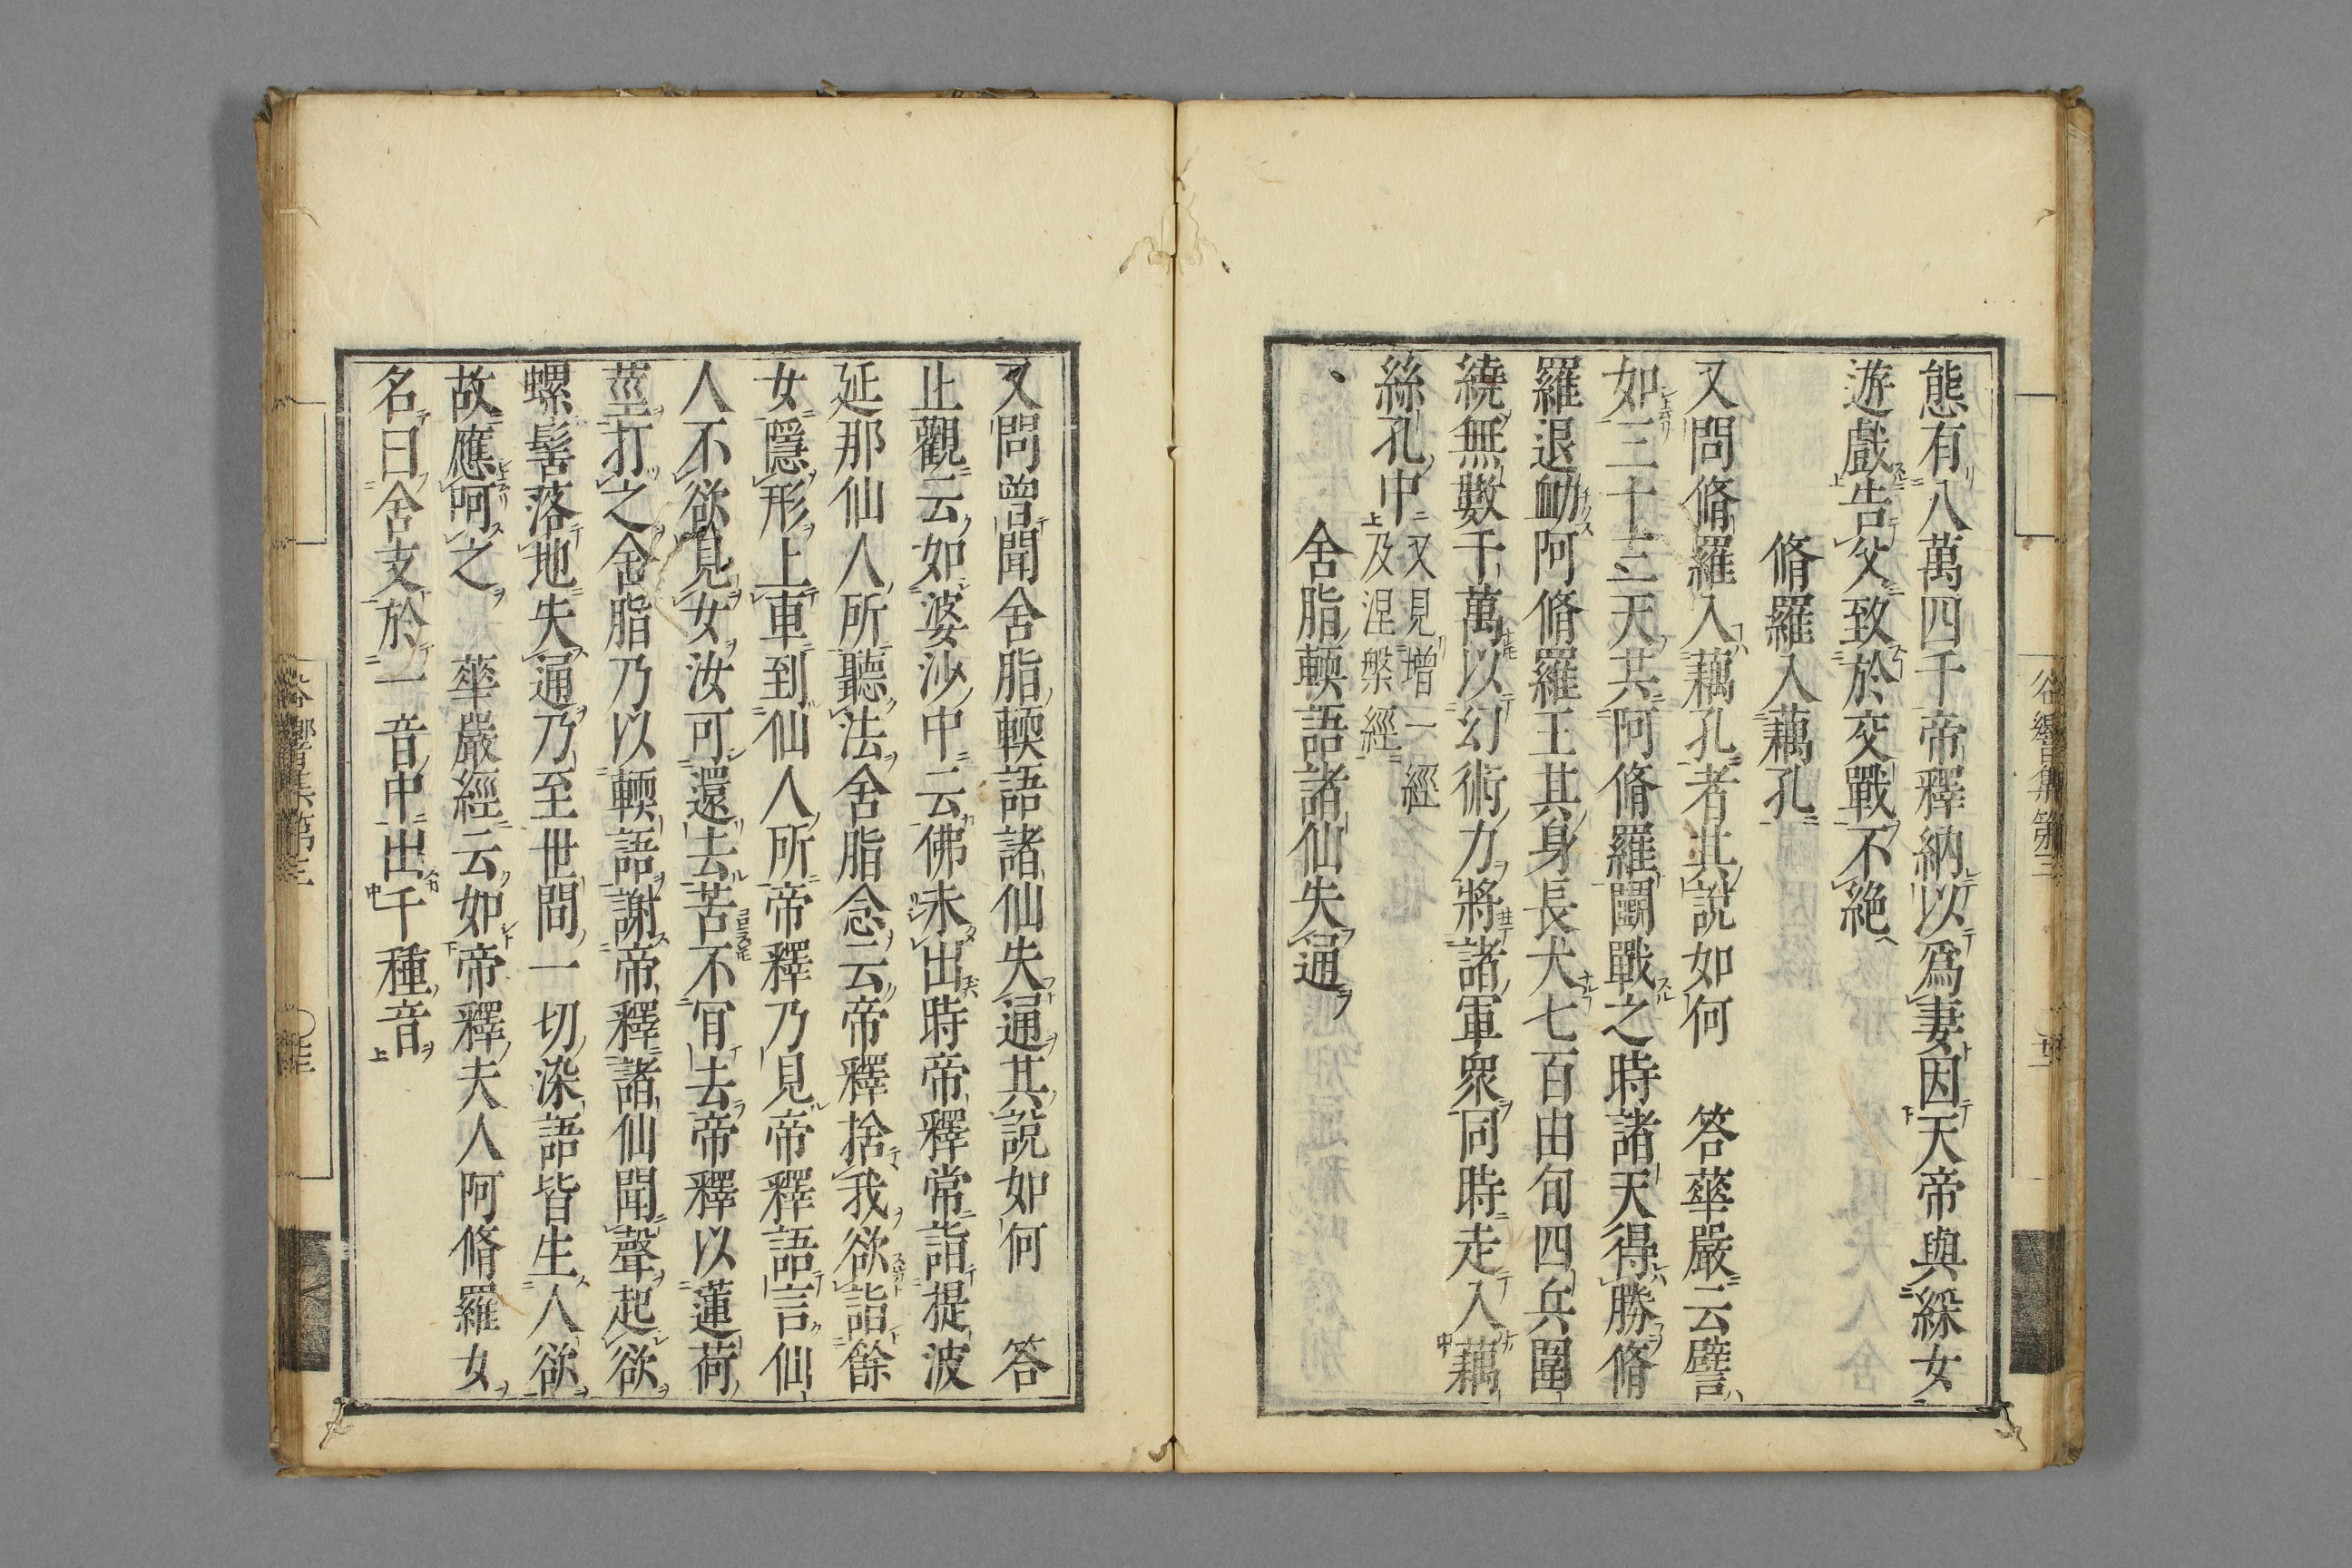 態有八萬四千帝釋納以爲妻因天帝與綵女
遊戲告父致於交戰不絶
脩羅入藕孔
又問脩羅入藕孔者其說如何　答華嚴云譬
如三十三天共阿脩羅鬪戰之時諸天得勝脩
羅退衂阿脩羅王其身長大七百由旬四兵圍
繞無數千萬以幻術力將諸軍衆同時走入藕
絲孔中又見增一經及涅槃經
舍脂輭語諸仙失通
又問曾聞舍脂輭語諸仙失通其說如何　答
止觀云如婆沙中云佛未出時帝釋常詣提波
延那仙人所聽法舍脂念云帝釋捨我欲詣餘
女隱形上車到仙人所帝釋乃見帝釋語言仙
人不欲見女汝可還去苦不肎去帝釋以蓮荷
莖打之舍脂乃以輭語謝帝釋諸仙聞聲起欲
螺髻落地失通乃至世間一切染語皆生人欲
故應呵之　華嚴經云如帝釋夫人阿脩羅女
名曰舍支於一音中出千種音
谷響集第三